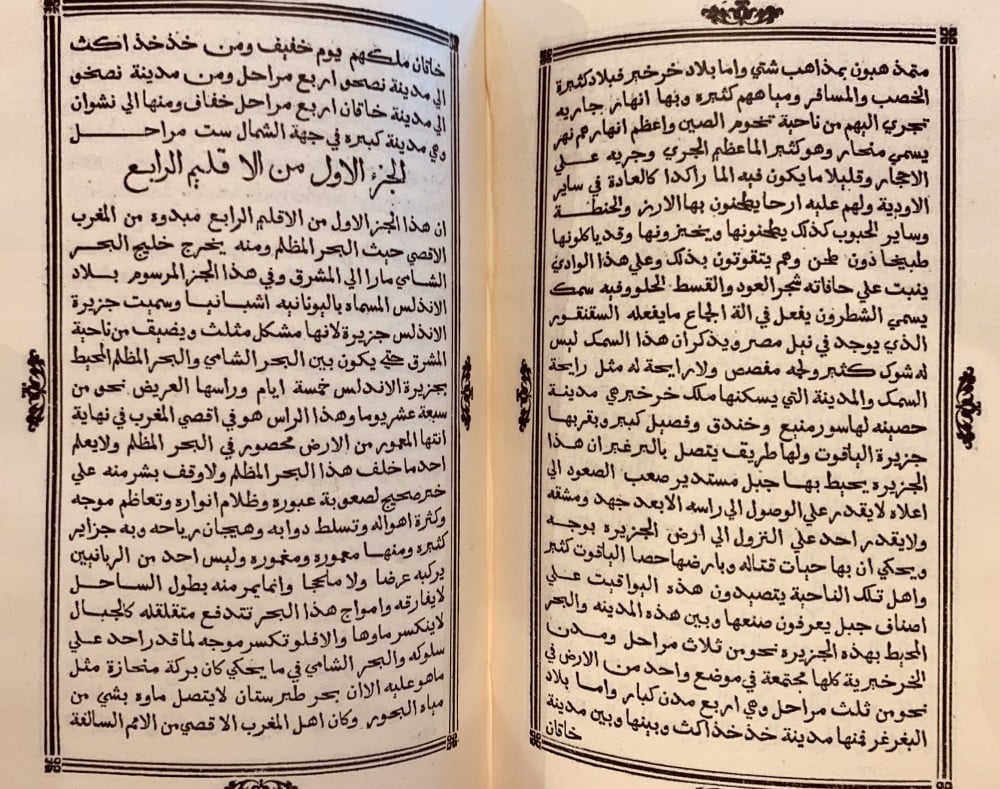 متمذهبون بمذاهب شتي واما بلاد خرخير فبلاد كثيرة
الخصب والمسافر ومياههم كثيره وبها انهار جاريه
تجري اليهم من ناحية تخوم الصين واعظم انهارهم نهر
يسمي منحار وهو كثير الما عظيم الجري وجريه علي
الاحجار وقليلا ما يكون فيه الما راكدا كالعادة في ساير
الاودية ولهم عليه ارحا يطحنون بها الارز والحنطة
وساير الحبوب كذلك يطحنونها ويخبزونها وقد ياكلونها
طبيخا دون طحن وهم يتقوتون بذلك وعلي هذا الوادي
ينبت علي حافاته شجر العود والقسط الحلو وفيه سمك
يسمي الشطرون يفعل في الة الجماع ما يفعله السقنقور
الذي يوجد في نيل مصر ويذكر ان هذا السمك ليس
له شوك كثير ولحمه مفصص ولا رايحة له مثل رايحة
السمك والمدينة التي يسكنها ملك خرخير هي مدينة
حصينه لها سور منيع وخندق وفصيل كبير وبقربها
جزيرة الياقوت ولها طريف يتصل بالبر غير ان هذا
الجزيره يحيط بها جبل مستدير صعب الصعود الي
اعلاه لا يقدر علي الوصول الي راسه الا بعد جهد ومشقه
ولا يقدر احد علي النزول الي ارض الجزيره بوجه
ويحكي ان بها حيات قتاله وبارضها حصا الياقوت كثير
واهل تلك الناحية يتصيدون هذه اليواقيت علي
اصناف حيل يعرفون صنعها وبين هذه المدينه والبحر
المحيط بهذه الجزيره نحو من ثلاث مراحل ومدن
الخرخيرية كلها مجتمعة في موضع واحد من الارض في
نحو من ثلث مراحل وهي اربع مدن كبار واما بلاد
البغرغر فمنها مدينة خذخذاكث وبينها وبين مدينة
خاقان
خاقان ملكهم يوم خفيف ومن خذخذاكث
الي مدينة نصحو اربع مراحل ومن مدينة نصخو
الي مدينة خاقان اربع مراحل خفاف ومنها الي نشوان
وهي مدينة كبيره في جهة الشمال ست مراحل
الجزء الاول من الاقليم الرابع
ان هذا الجز الاول من الاقليم الرابع مبدوه من المغرب
الاقصي حيث البحر المظلم ومنه يخرج خليج البحر
الشامي مارا الي المشرق وفي هذا الجز المرسوم بلاد
الاندلس المسماه باليونانيه اشبانيا وسميت جزيرة
الاندلس جزيرة لانها مشكل مثلث ويضيف من ناحية
المشرق حتي يكون بين البحر الشامي والبحر المظلم المحيط
بجزيرة الاندلس خمسة ايام وراسها العريض نحو من
سبعة عشر يوما وهذا الراس هو في اقصي المغرب في نهاية
انتها المعمور من الارض محصور في البحر المظلم ولا يعلم
احد ما خلف هذا البحر المظلم ولا وقف بشر منه علي
خبر صحيح لصعوبة عبوره وظلام انواره وتعاظم موجه
وكثرة اهواله وتسلط دوابه وهيجان رياحه وبه جزاير
كثيره ومنها معموره ومغموره وليس احد من الربانيين
يركبه عرضا ولا ملججا وانما يمر منه بطول الساحل
لا يفارقه وامواج هذا البحر تتدفع متقلقله كالجبال
لا ينكسر ماوها والا فلو تكسر موجه لما قدر احد علي
سلوكه والبحر الشامي في ما يحكي كان بركة منحازة مثل
ما هو عليه الاان بحر طبرستان لا يتصل ماوه بشي من
مياه البحور وكان اهل المغرب الاقصي من الامم السالفة